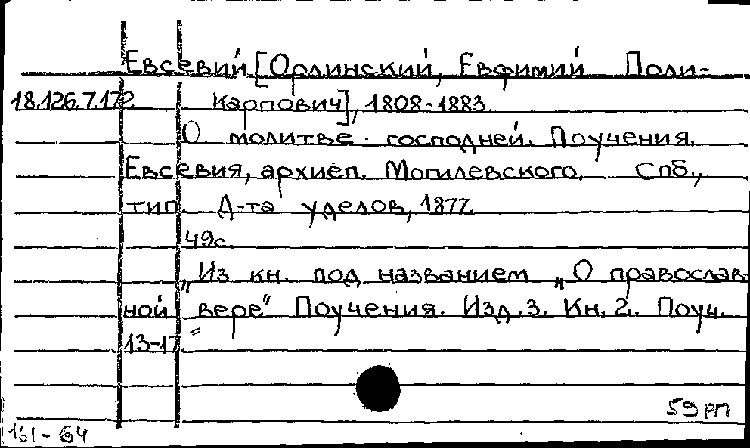 Евсевий [Орлинский, Евфимий Поли-
18.126.7.172 карпович], 1808-1883.
О молитве господней. Поучения.
Евсевия, архиеп. Могилевского. Спб.,
тип. Д-та уделов, 1877.
49с.
„Из кн. под названием „О православ
ной вере“ Поучения. Изд. 3. Кн. 2. Поуч.
13-17“
59 рп
161-64